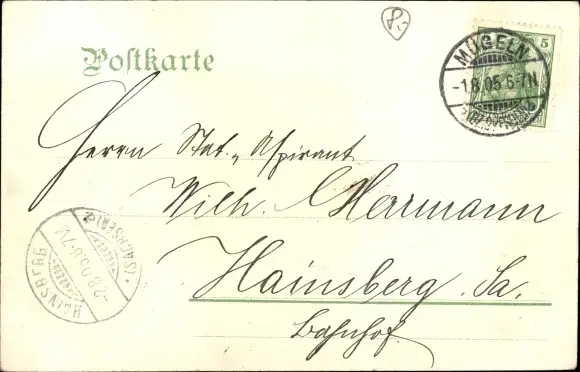 8.-
Postkarte
5
MÜGELN
-1.8.05 6-7N
Herrn Stat.-Aspirant
Wilh. Herrmann
Hainsberg Sa.
Bahnhof.
HAINSBERG
(SACHSEN)
-2.8.05.